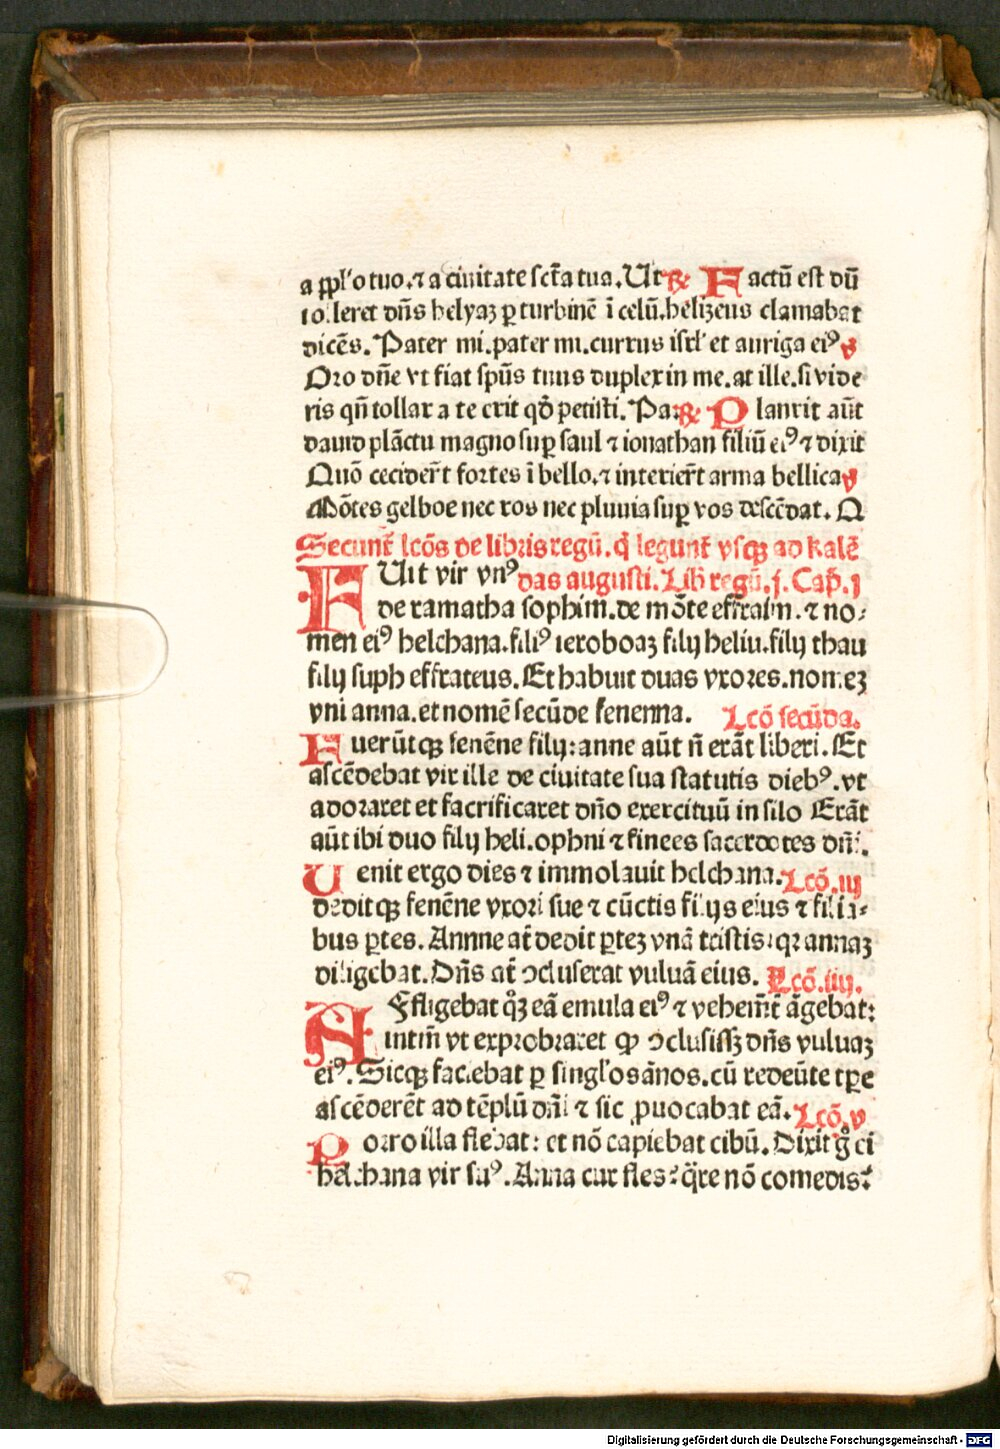 a ppl'o tuo.⁊ a ciuitate sctã tua.Ut ℟ Factũ est dũ
tolleret dñs helyaʒ p turbinẽ ĩ celũ.helizeus clamabat
dicẽs. Pater mi.pater mi.currus isrl' et auriga eiꝰ ℣
Oro dñe vt fiat spũs tuus duplex in me.at ille.si vide
ris qñ tollar a te erit qð petisti. Pa. ℟ Planxit aũt
dauid plãctu magno sup saul ⁊ ionathan filiũ eiꝰ ⁊ dixit
Quõ cecider̃t fortes ĩ bello.⁊ interier̃t arma bellica ℣
Mõtes gelboe nec ros nec pluuia sup vos descẽdat. Q
Secunt̃ lcõs de libris regũ. q̃ legunt̃ vsqꝫ ad kalẽ
FUit vir vnꝰ das augusti. Lib regũ.j. Cap̃.j
de ramatha sophim.de mõte effraim. ⁊ no⸗
men eiꝰ helchana.filiꝰ ieroboaʒ filij heliu.filij thau
filij suph effrateus. Et habuit duas vxores.nomeʒ
vni anna.et nomẽ secũde fenenna. Lcõ secũda.
Fuerũtqꝫ fenẽne filij: anne aũt ñ erãt liberi. Et
ascẽdebat vir ille de ciuitate sua statutis diebꝰ. vt
adoraret et sacrificaret dño exercituũ in silo Erãt
aũt ibi duo filij heli.ophni ⁊ finees sacerdotes dñi.
Uenit ergo dies ⁊ immolauit helchana. Lcõ.iij
deditqꝫ fenẽne vxori sue ⁊ cũctis filijs eius ⁊ filia⸗
bus ptes. Annne at̃ dedit pteʒ vnã tristis: qꝛ annaʒ
diligebat. Dñs at̃ ɔcluserat vuluã eius. Lcõ.iiij.
AFfligebat qꝫ eã emula eiꝰ ⁊ vehem̃t̃ ãgebat:
intm̃ vt exprobraret ꝙ ɔclusissʒ dñs vuluaʒ
eiꝰ. Sicqꝫ faciebat p singl'os ãnos.cũ redeũte tpe
ascẽderẽt ad tẽplũ dñi ⁊ sic puocabat eã. Lcõ.v
Porro illa flebat: et nõ capiebat cibũ. Dixit g̊ ei
helchana vir suꝰ. Anna cur fles? q̃re nõ comedis?
Digitalisierung gefördert durch die Deutsche Forschungsgemeinschaft - DFG